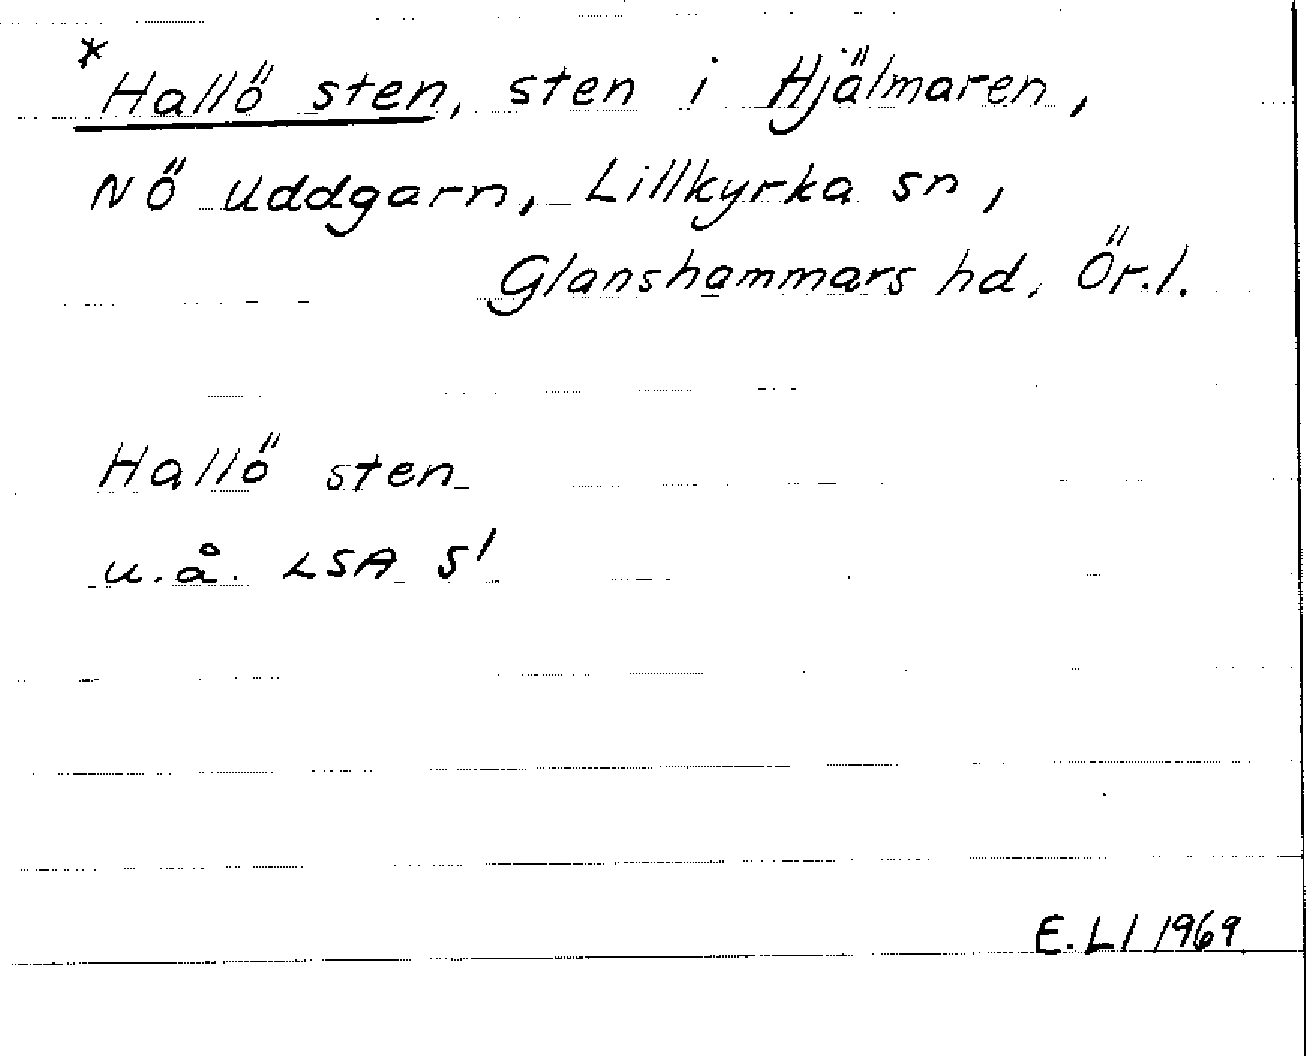 *Hallö sten, sten i Hjälmaren,
NÖ Uddgarn, Lillkyrka sn,
Glanshammars hd, Ör.l.
Hallö sten
u.å. LSA S'
E. Ll 1969